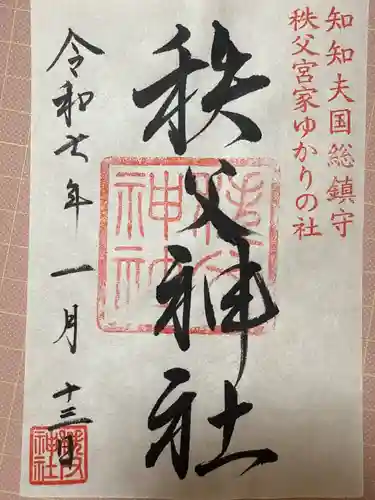 知知夫国総鎮守
秩父宮家ゆかりの社
秩父神社
令和七年一月十三日
秩父神社
秩父神社